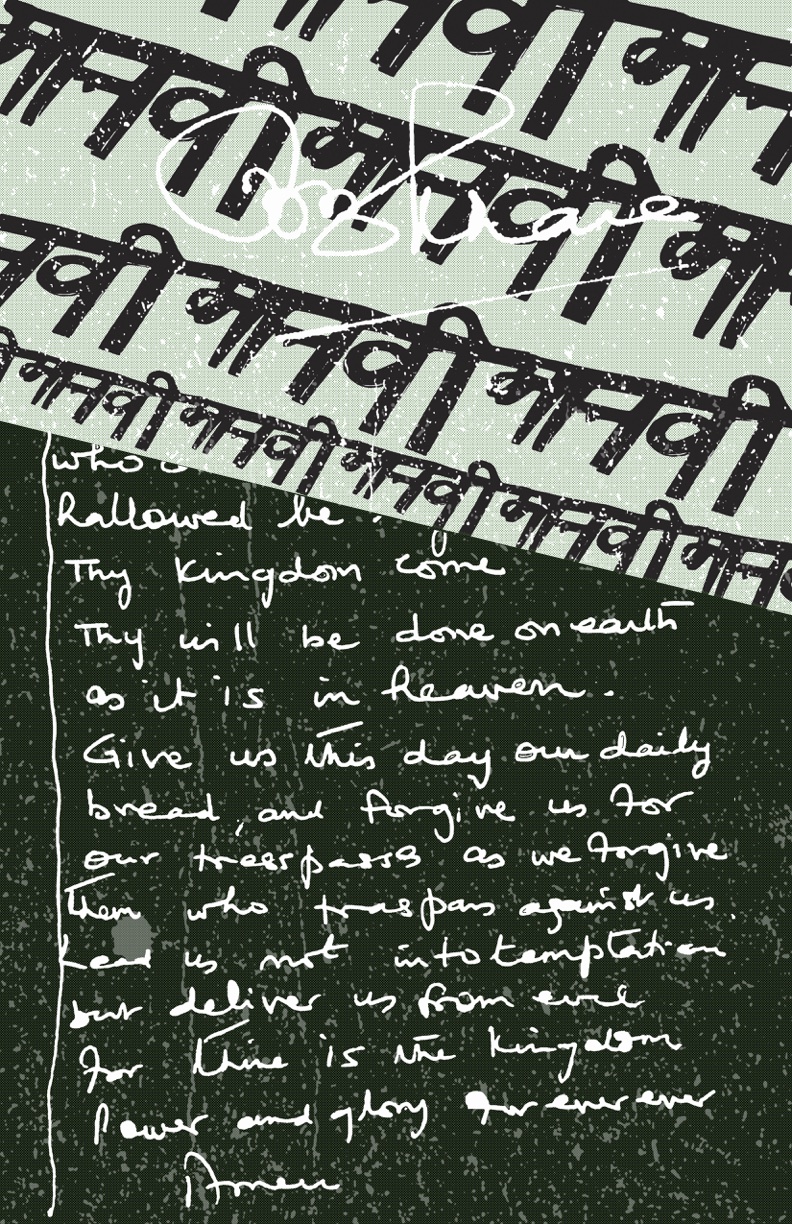 मानवी मानवी
मानवी मानवी मानवी
मानवी मानवी मानवी
मानवी मानवी मानवी मानवी मानवी
who
hallowed be
Thy Kingdom come
Thy will be done on earth
as it is in heaven.
Give us this day our daily
bread, and forgive us for
our treespasses as we forgive
them who traspass against us.
Lead us not into temptation
but deliver us from evil
For thine is the kingdom
Power and glory for ever ever
Amen